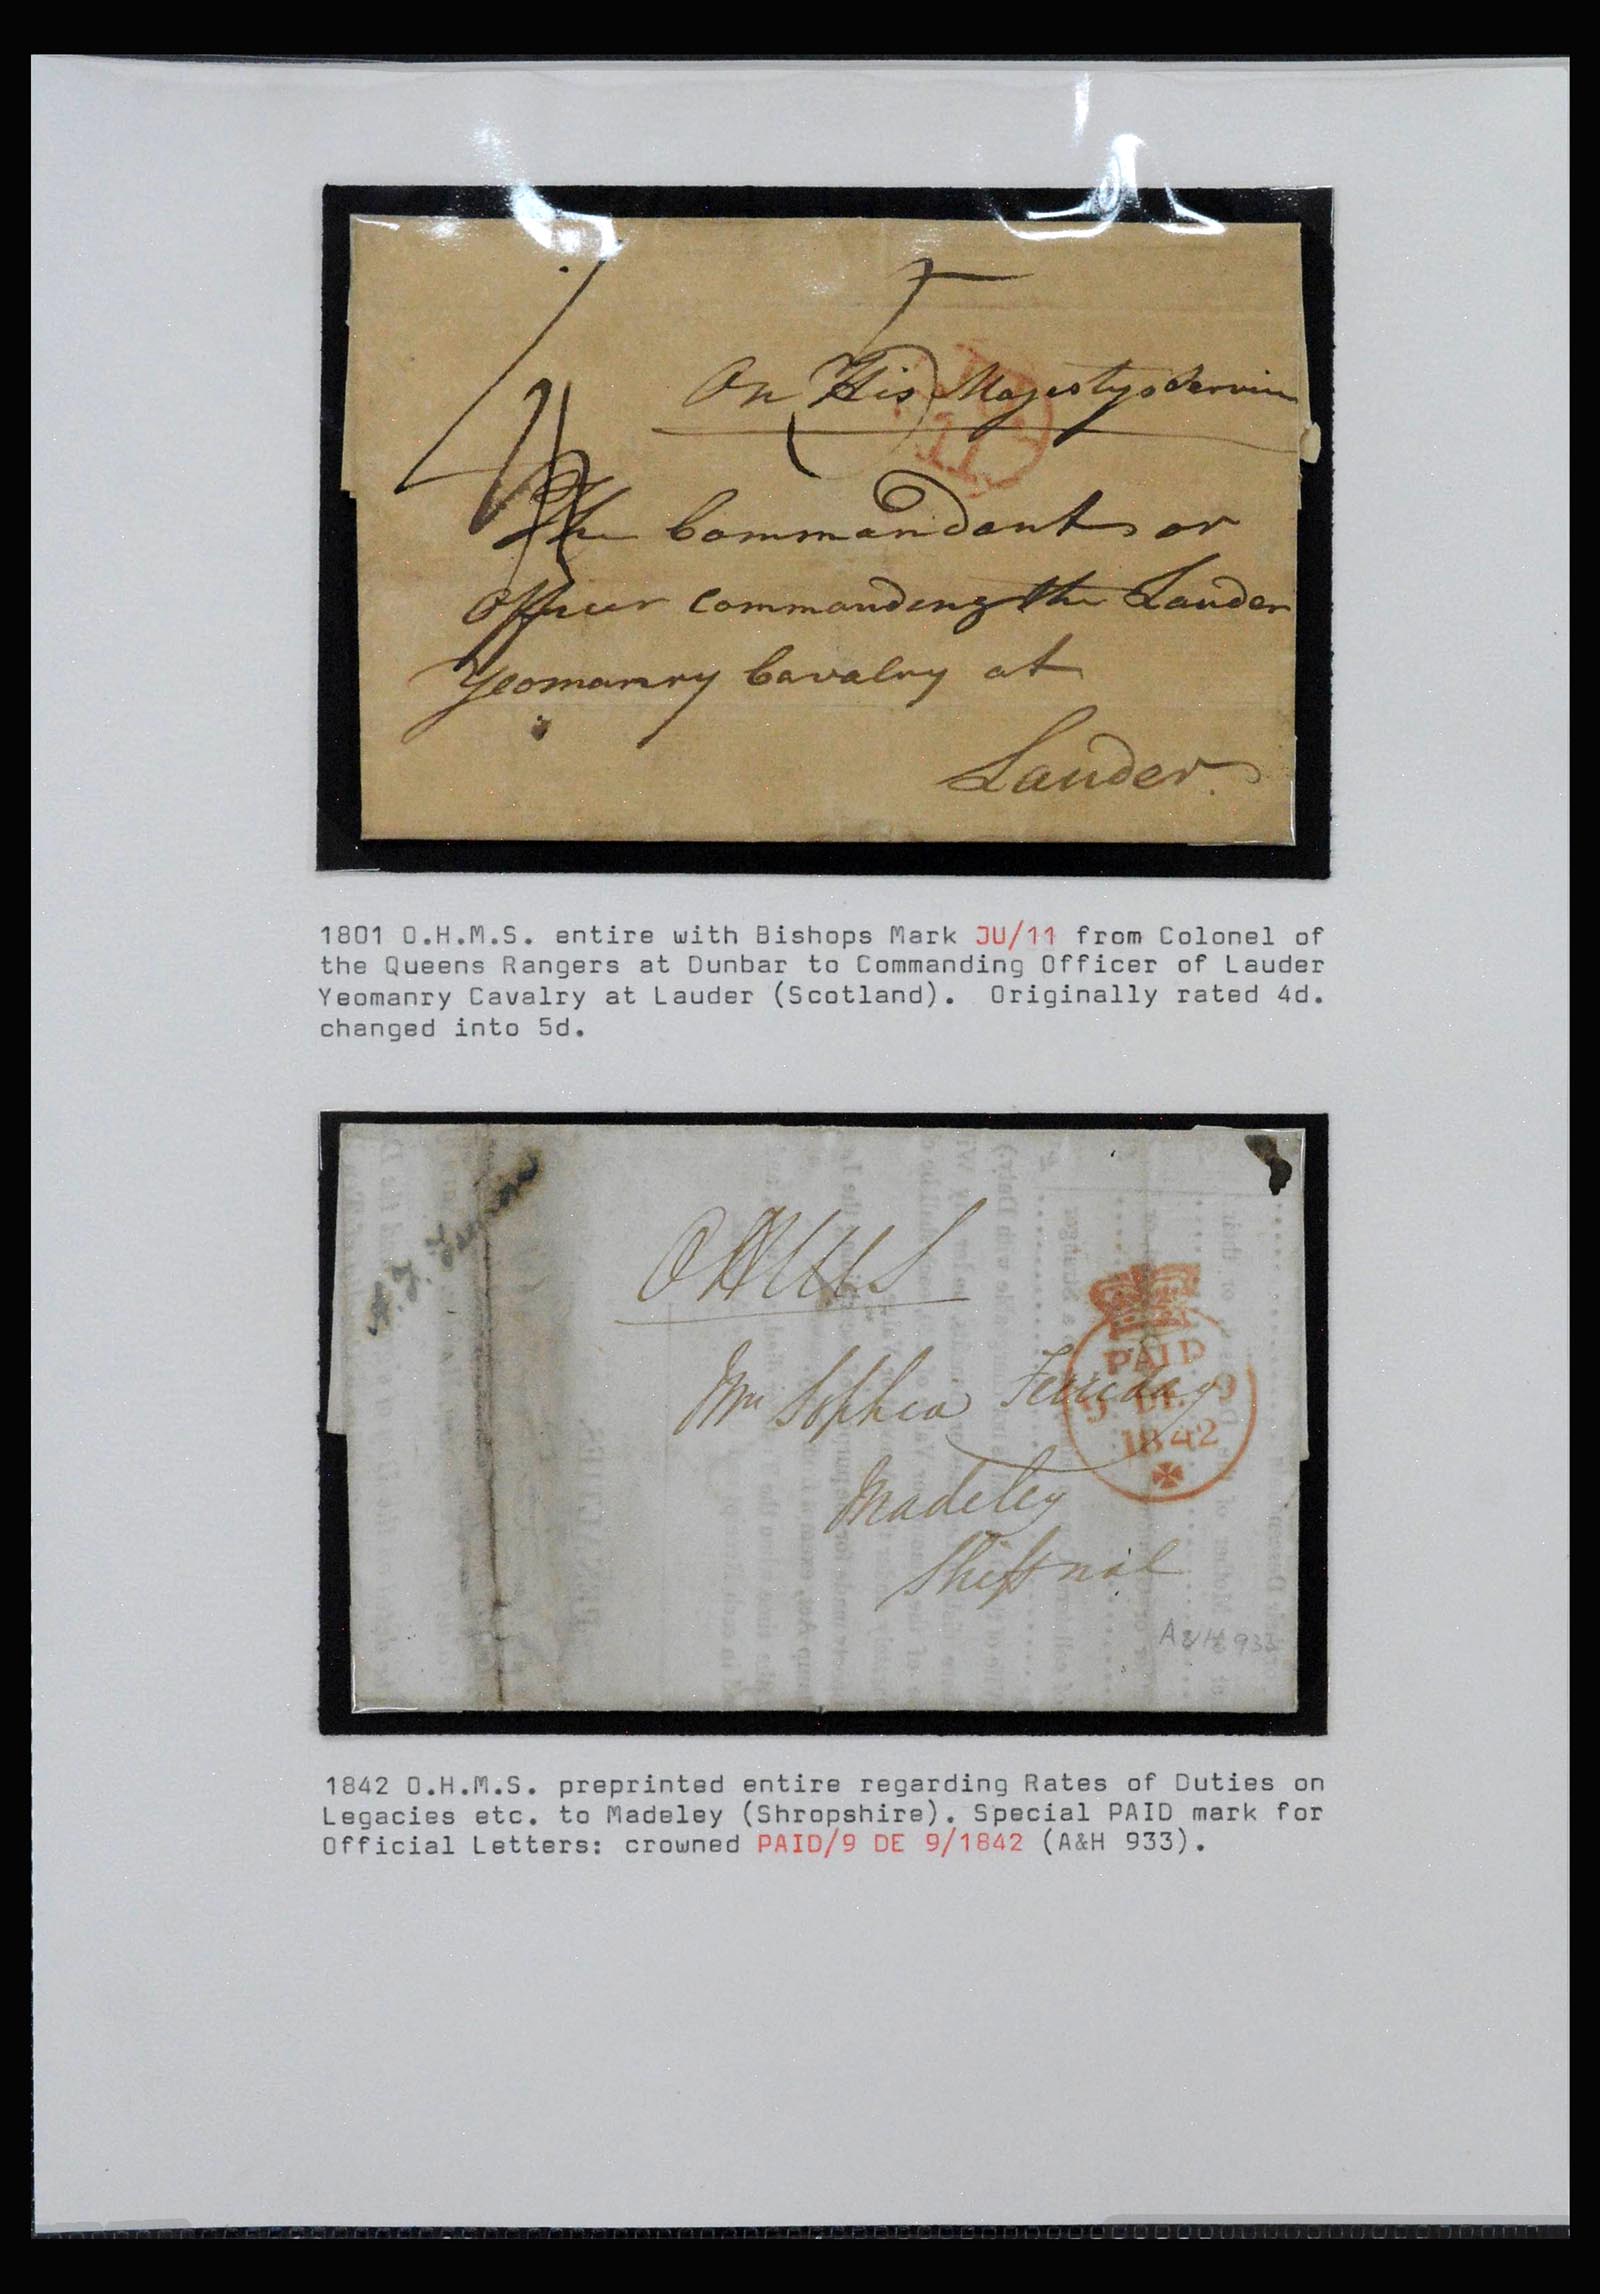 4
5
On His Majestys Service
JU
11
The Commandant or
Officer Commanding the Lauder
Yeomanry Cavalry at
Lauder.
1801 O.H.M.S. entire with Bishops Mark JU/11 from Colonel of
the Queens Rangers at Dunbar to Commanding Officer of Lauder
Yeomanry Cavalry at Lauder (Scotland). Originally rated 4d.
changed into 5d.
OHMS
PAID
9 DE 9
1842
Sophia Ferriday
Madeley
Shiffnal
A&H 933
1842 O.H.M.S. preprinted entire regarding Rates of Duties on
Legacies etc. to Madeley (Shropshire). Special PAID mark for
Official Letters: crowned PAID/9 DE 9/1842 (A&H 933).